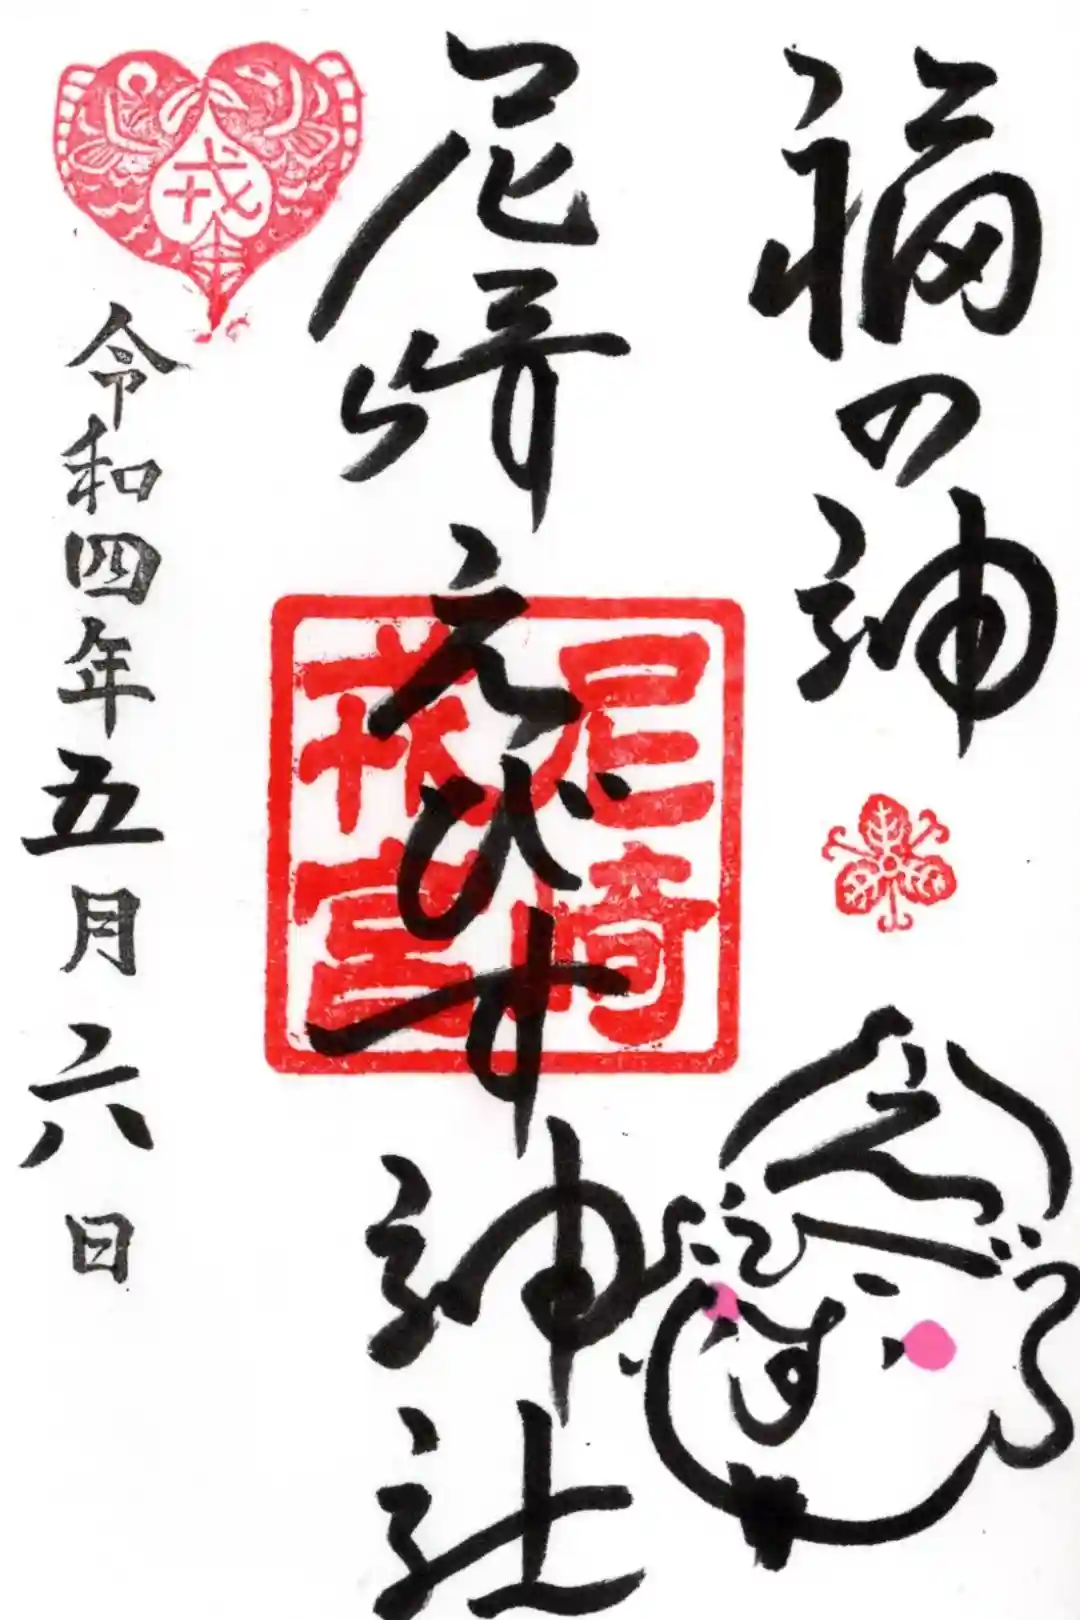 福の神
尼崎えびす神社
尼崎
戎宮
戎
令和四年五月六日
えびす